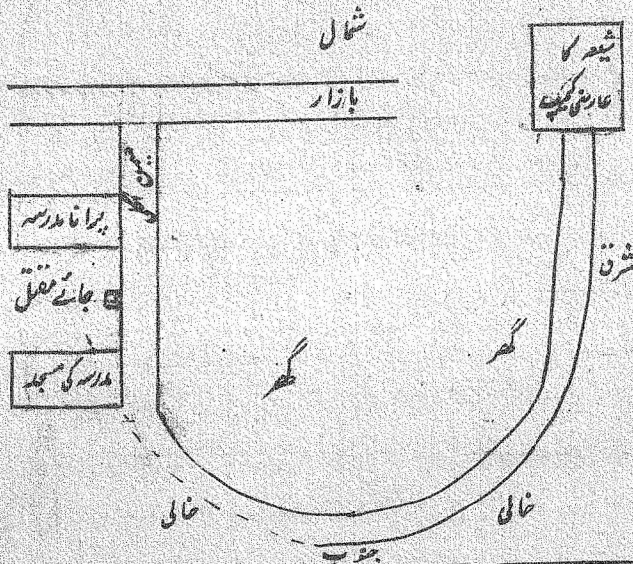 شمال
شیعہ کا
عارضی کیمپ
بازار
پرانا مدرسہ
جائے مقتل
مدرسہ کی مسجد
مشرق
گھر
گھر
خالی
خالی
جنوب